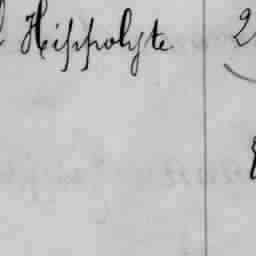 Hippolyte 2